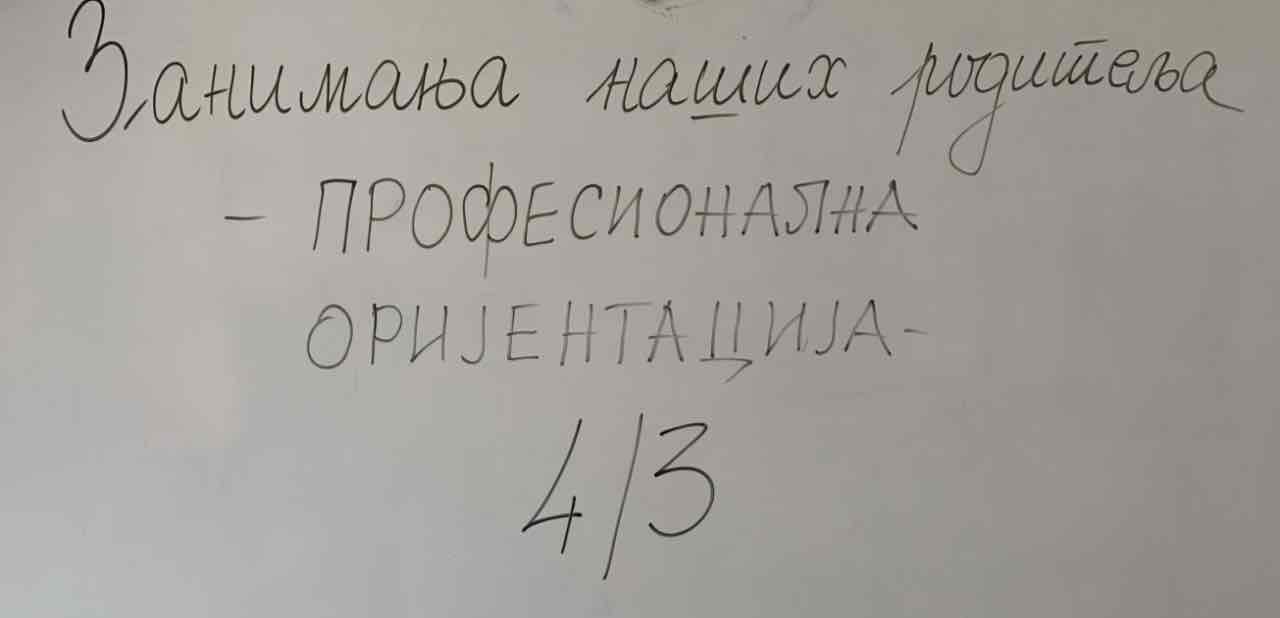 Занимања наших родитеља
- ПРОФЕСИОНАЛНА
ОРИЈЕНТАЦИЈА-
4/3